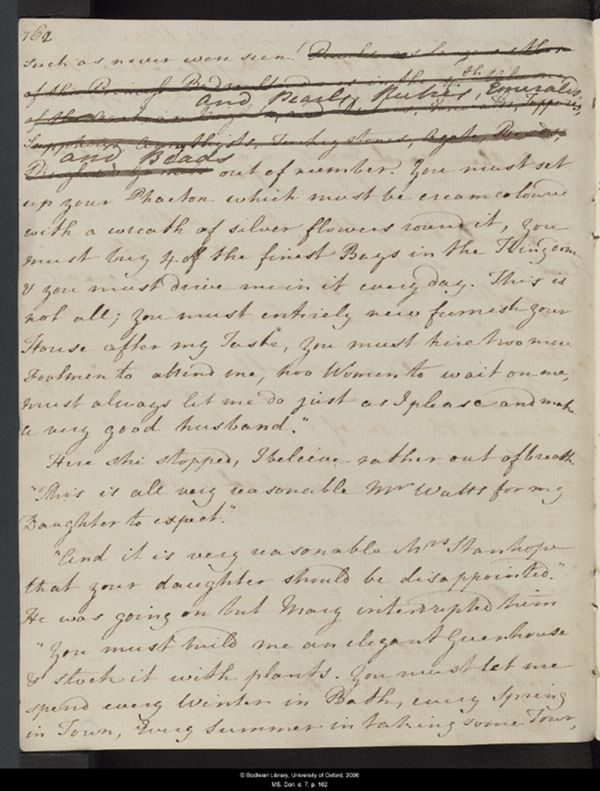 162
such as never were seen!
of the
and Pearls, Rubies, Emeralds,
of the
Sapphires, Amethysts, Turkey stones, Agate, Beads,
and Beads
out of number. You must set
up your Phaeton which must be creamcoloured
with a wreath of silver flowers round it, You
must buy 4 of the finest Bays in the Kingdom
& you must drive me in it every day. This is
not all; You must entirely new furnish your
House after my Taste, You must hire two more
Footmen to attend me, two Women to wait on me,
must always let me do just as I please and make
a very good husband."
Here she stopped, I beleive rather out of breath.
"This is all very reasonable Mr Watts for my
Daughter to expect."
"And it is very reasonable Mrs Stanhope
that your daughter should be disappointed."
He was going on but Mary interrupted him
"You must build me an elegant Greenhouse
& stock it with plants. You must let me
spend every Winter in Bath, every Spring
in Town, Every Summer in taking some Tour,
© Bodleian Library, University of Oxford, 2006
MS. Don. e. 7, p. 162